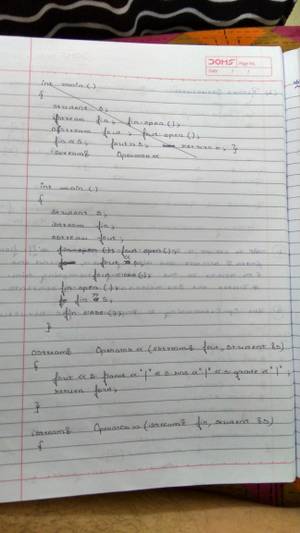 DOMS Page No.
Date / /
int main()
{
student s;
fstream fin; fin.open();
ofstream fout; fout.open();
fin >> s; fout << s; return 0; }
istream& Operator <<
int main()
{
student s;
istream fin;
ostream fout;
fout.open();
fout << s;
fout.close();
fin.open();
fin >> s;
fin.close();
}
ostream& Operator << (ostream& fout, student &s)
{
fout << s.name << "|" << s.rno << "|" << s.grade << "|";
return fout;
}
istream& Operator >> (istream& fin, student &s)
{